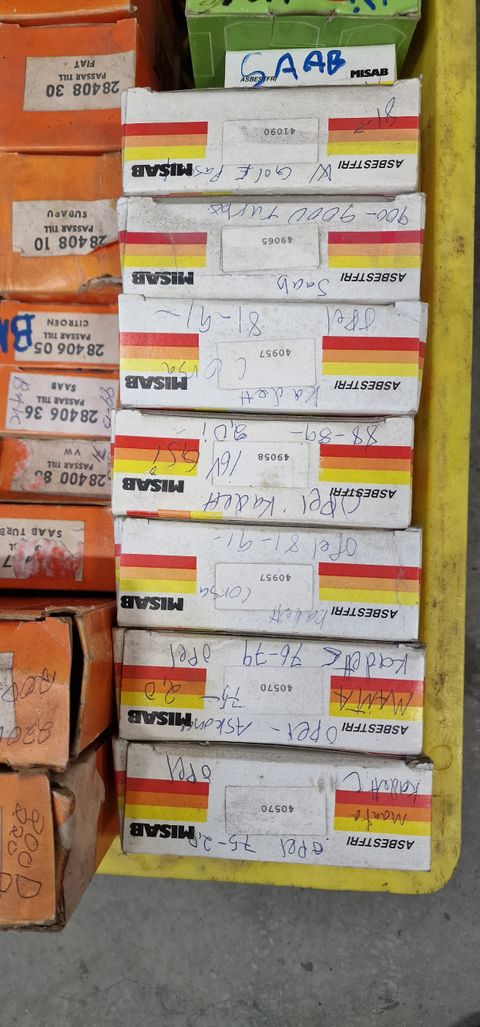 SAAB
ASBESTFRI
MISAB
28408 30
PASSAR TILL
FIAT
28408 10
PASSAR TILL
SUBARU
28406 05
PASSAR TILL
CITROEN
28406 36
PASSAR TILL
SAAB
PASSAR TILL
VW
SAAB TURB
41090
MISAB
ASBESTFRI
Golf
900-9000 turbo
49065
Saab
MISAB
ASBESTFRI
Opel 81-91-
40957
Kadett Corsa
MISAB
ASBESTFRI
88-89- 2,0i-
49058
16V GSi
Opel Kadett
MISAB
ASBESTFRI
Opel 81-91-
40957
Kadett Corsa
MISAB
ASBESTFRI
Kadett C 76-79 Opel
40570
MANTA
75- 2,0
Opel - Askona
MISAB
ASBESTFRI
Kadett C
Opel
40570
Manta
Opel 75-2,0
MISAB
ASBESTFRI